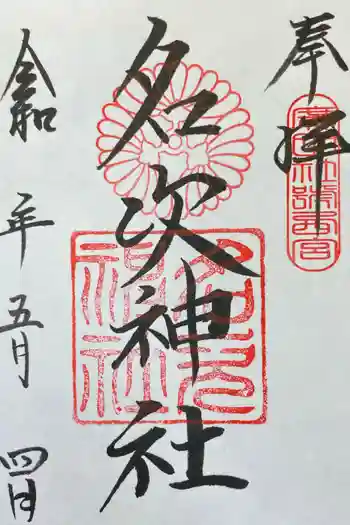 奉拝
名次神社
令和 年五月 四日